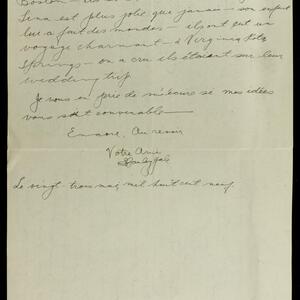 Boston — 
Lena est plus jolie que jamais — son enfant
lui a fait des mondes — ils ont eut un
voyage charmant — à Virginia Hots
Springs — on a cru ils étaient sur leur
wedding trip
Je vous en prie de m'écrire sé mes idées
vous sont convenable —
Encore, Au revoir
Votre Amie
Le vingt-trois mai, mil huit cent neuf.